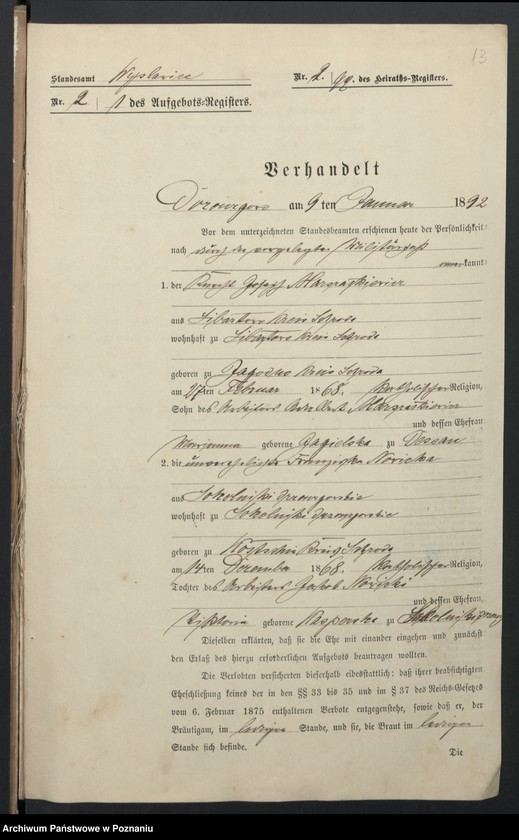 13
Standesamt
Nr. 2. 92. des Heiraths-Registers.
Nr. 2 1 des Aufgebots-Registers.
Verhandelt
am 9 ten Januar 1892
Vor dem unterzeichneten Standesbeamten erschienen heute der Persönlichkeit
nach durch den vorgelegten Militärpaß
kannt:
1. der Knecht Joseph
aus Kreis Schroda
wohnhaft zu Kreis Schroda
geboren zu Kreis Schroda
am 27ten Februar 1868. Katholischer Religion,
Sohn des Arbeiters
und dessen Ehefrau
Marianna geborene Jagielska zu Dessau
2. die unverehelichte Franziska Nowicka
aus Sokolniki
wohnhaft zu Sokolniki
geboren zu Kreis Schroda
am 14ten Dezember 1868. Katholischer Religion,
Tochter des Arbeiters Jakob Nowicki
und dessen Ehefrau,
geborene zu
Dieselben erklärten, daß sie die Ehe mit einander eingehen und zunächst
den Erlaß des hierzu erforderlichen Aufgebots beantragen wollten.
Die Verlobten versicherten dieserhalb eidesstattlich: daß ihrer beabsichtigten
Eheschließung keines der in den §§ 33 bis 35 und im § 37 des Reichs-Gesetzes
vom 6. Februar 1875 enthaltenen Verbote entgegenstehe, sowie daß er, der
Bräutigam, im ledigen Stande, und sie, die Braut im ledigen
Stande sich befinde.
Die
Archiwum Państwowe w Poznaniu